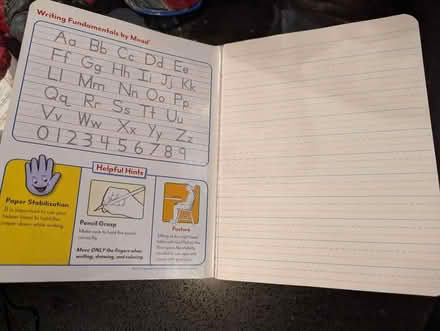 Writing Fundamentals by Mead
Aa Bb Cc Dd Ee
Ff Gg Hh Ii Jj Kk
Ll Mm Nn Oo Pp
Qq Rr Ss Tt Uu
Vv Ww Xx Yy Zz
0 1 2 3 4 5 6 7 8 9
Helpful Hints
Paper Stabilization
It is important to use your
helper hand to hold the
paper down while writing.
Pencil Grasp
Make sure to hold the pencil
correctly.
Move ONLY the fingers when
writing, drawing, and coloring.
Posture